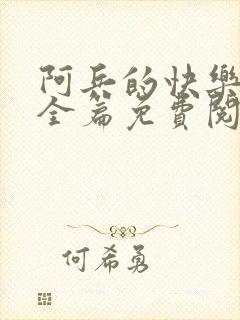 阿兵的快樂
全篇免費閱
何希勇